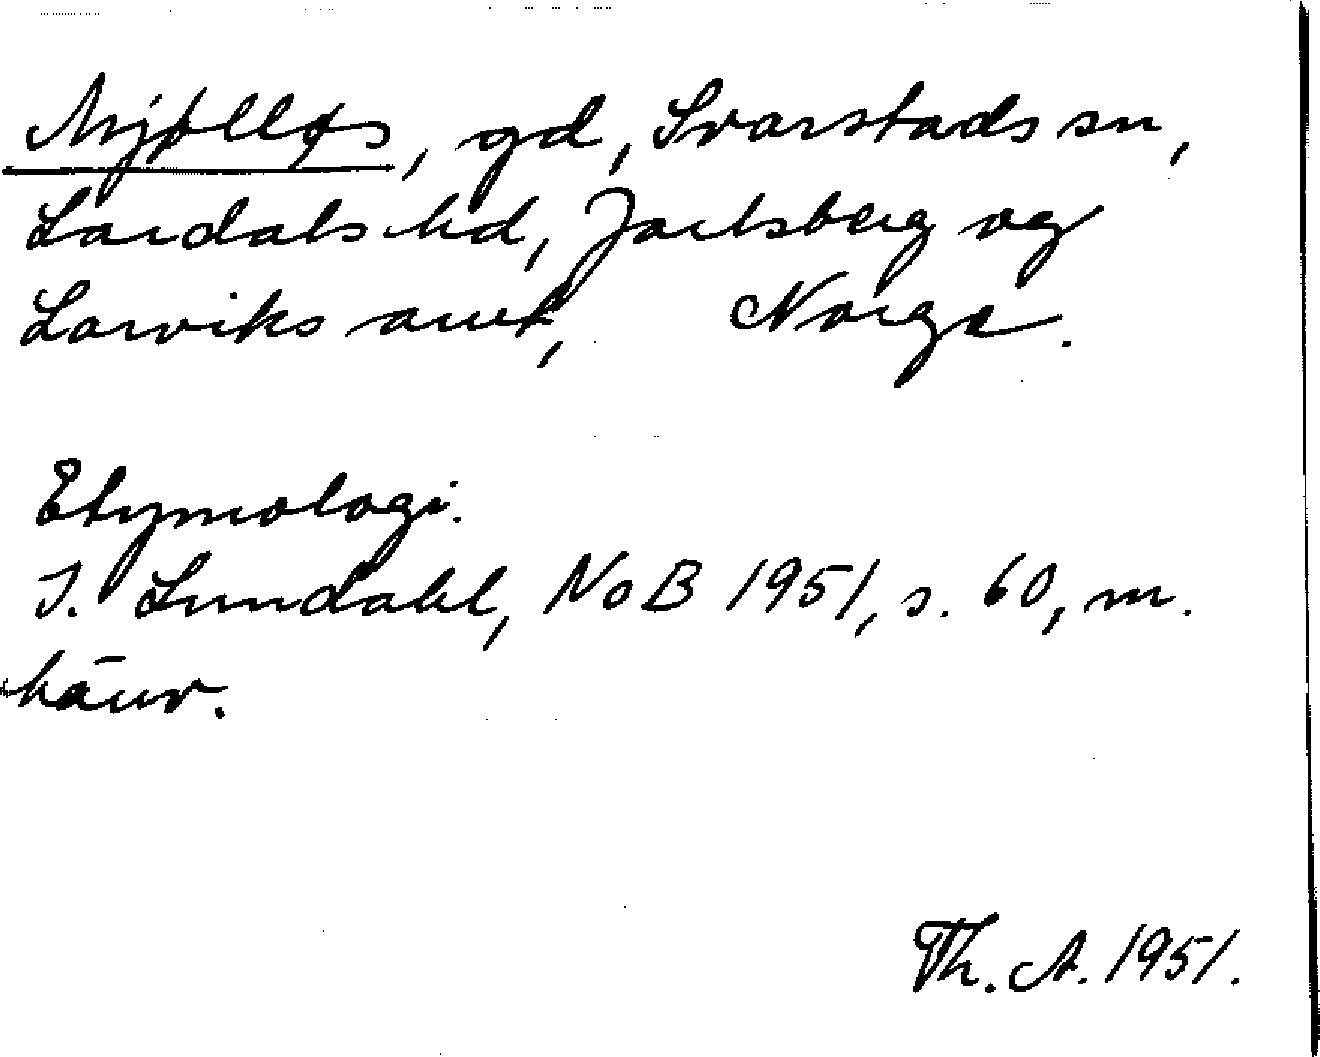 Mjølløs, gd, Svarstads sn,
Lardals hd, Jarlsberg og
Larviks amt, Norge.
Etymologi.
I. Lundahl, NoB 1951, s. 60, m.
hänv.
Th. A. 1951.